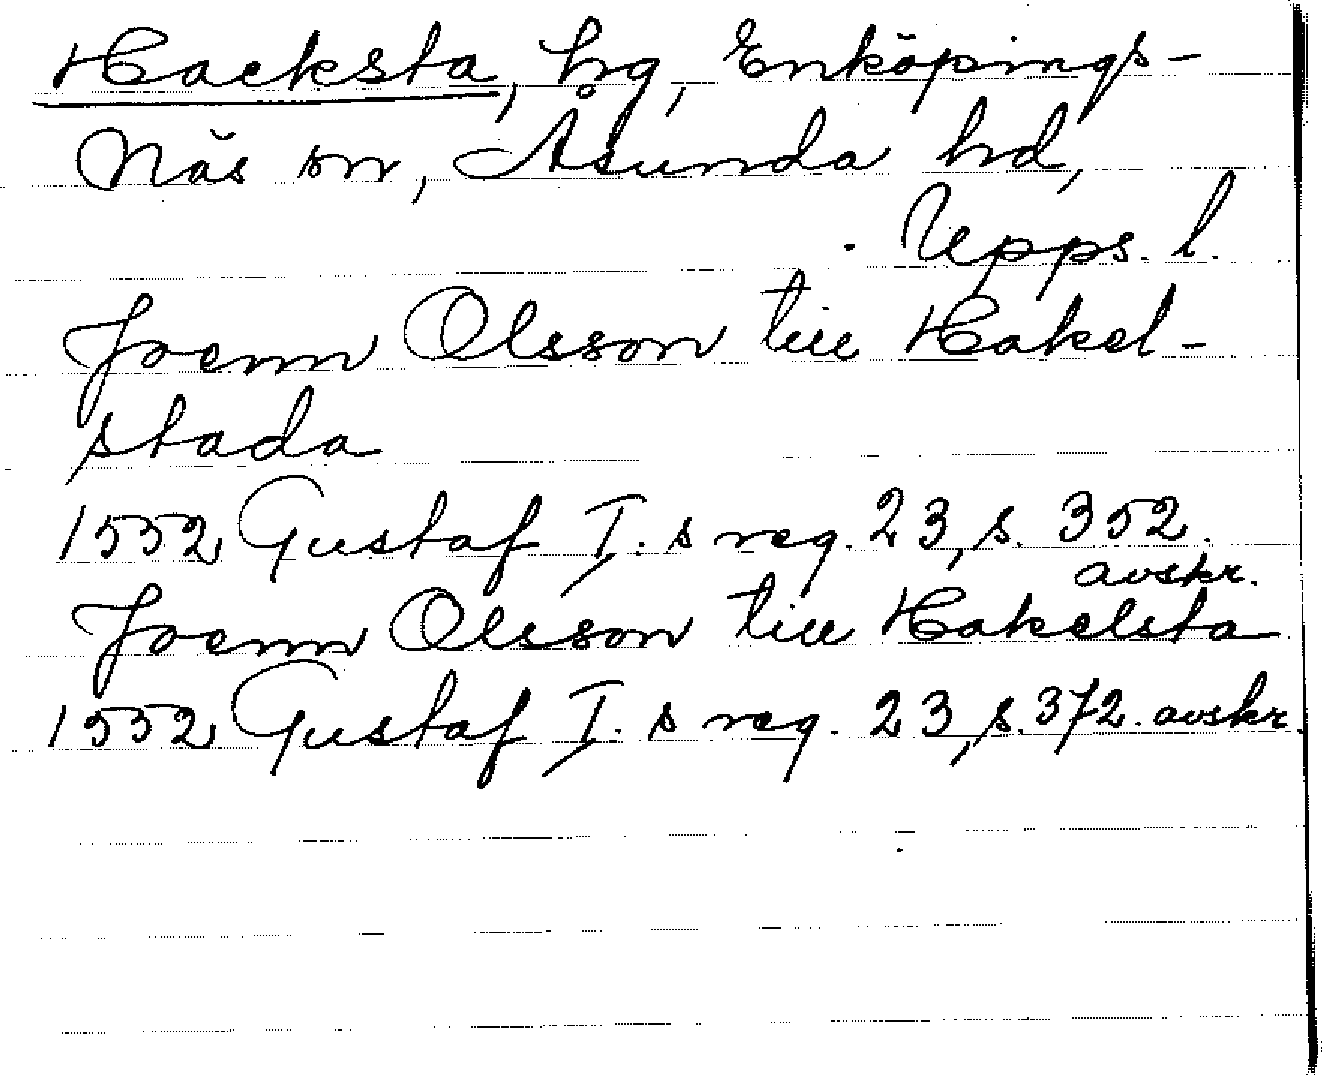 Hacksta, hg, Enköpings-
Näs sn, Åsunda hd,
Upps. l.
Joenn Olsson till Hakel-
stada
1552 Gustaf I.s reg. 23, s. 352.
avskr.
Joenn Olsson till Hakelsta
1552 Gustaf I.s reg. 23, s. 372. avskr.